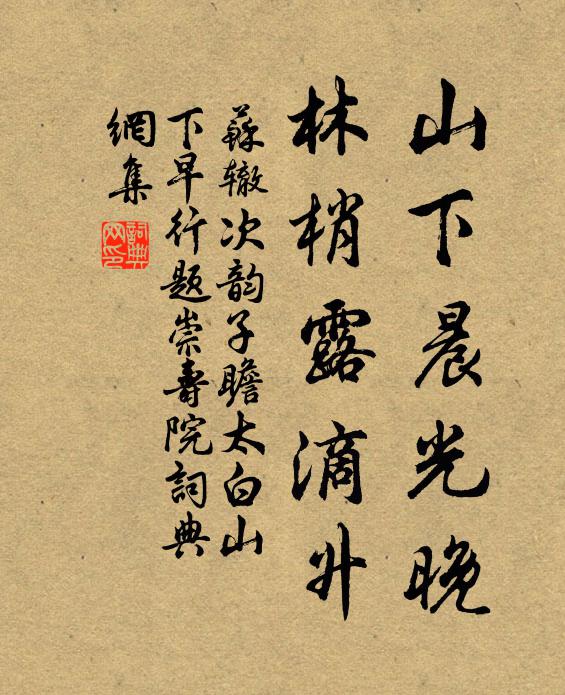 山下晨光晚
林梢露滴升
蘇辙次韵子瞻太白山
下早行题崇壽院詞典
網集
詞典网印